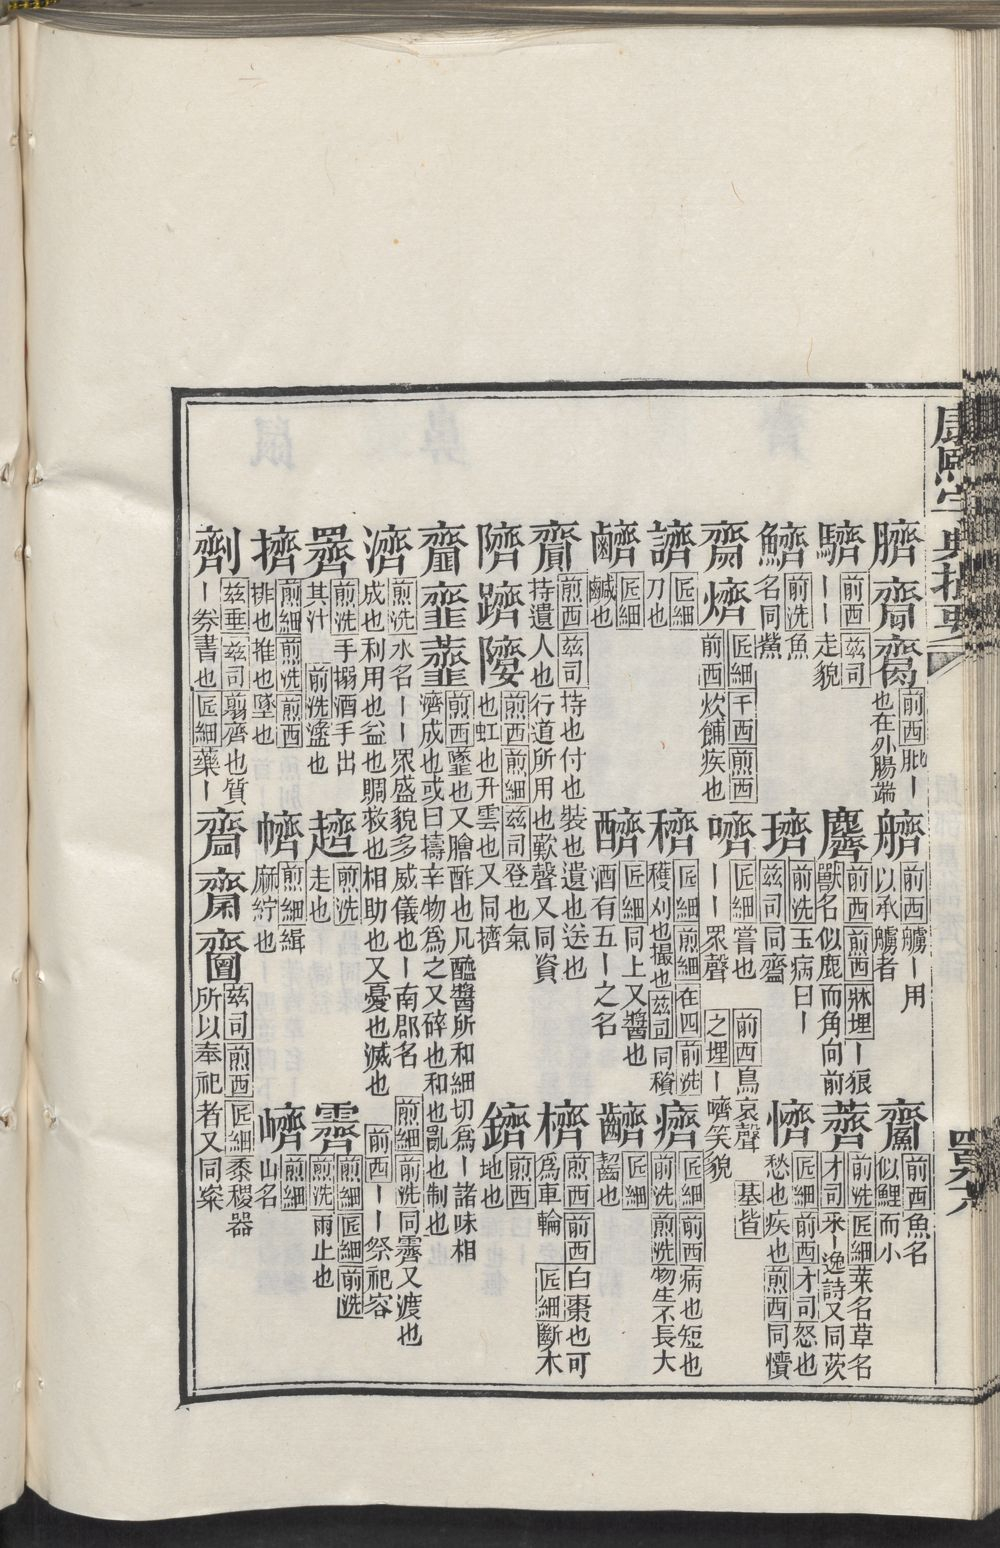 康熙字典撮要
四百九六
臍齌䶒前西肶丨也在外腸端 艩前西艣丨用以承艣者 䶩前西魚名似鯉而小
䮺前西兹司丨丨走貌 麡前西煎西牀埋丨狼獸名似鹿而角向前 薺前洗匠細菜名草名才司采丨逸詩又同茨
鱭前洗魚名同鮆 璾前洗玉病曰丨兹司同齍 懠匠細前西才司怒也愁也疾也煎西同懠
齌燲匠細千西煎西前西炊餔疾也 嚌匠細嘗也丨丨眾聲 前西鳥哀聲之埋丨嚌笑貌 基皆
䜞匠細刀也 穧匠細煎細在四前洗穫刈也撮也兹司同積 癠匠細前西病也短也前洗煎洗物生不長大
匠細鹹也 䤒匠細同上又醬也酒有五丨之名 齭匠細齧也
齎煎西兹司持也付也裝也遺也送也持遺人也行道所用也歎聲又同資 櫅煎西前西白棗也可為車輪匠細斷木
隮躋䧝煎西煎細兹司登也氣也虹也升雲也又同擠 鑇煎西地也
齏韲虀煎西䪢也又膾酢也凡醯醬所和細切為丨諸味相濟成也或曰擣辛物為之又碎也和也亂也制也
濟煎洗水名丨丨眾盛貌多威儀也丨南郡名煎細前洗同霽又渡也成也利用也益也賙救也相助也又憂也滅也前西丨丨祭祀容
煎洗手搦酒手出其汁前洗盪也 䞘煎洗走也 霽煎細匠細前洗煎洗雨止也
擠煎細煎洗煎西排也推也墜也 㡜煎細緝麻紵也 㠱煎細山名
劑兹垂兹司翦齊也質丨券書也匠細藥丨 齍兹司煎西匠細黍稷器所以奉祀者又同粢